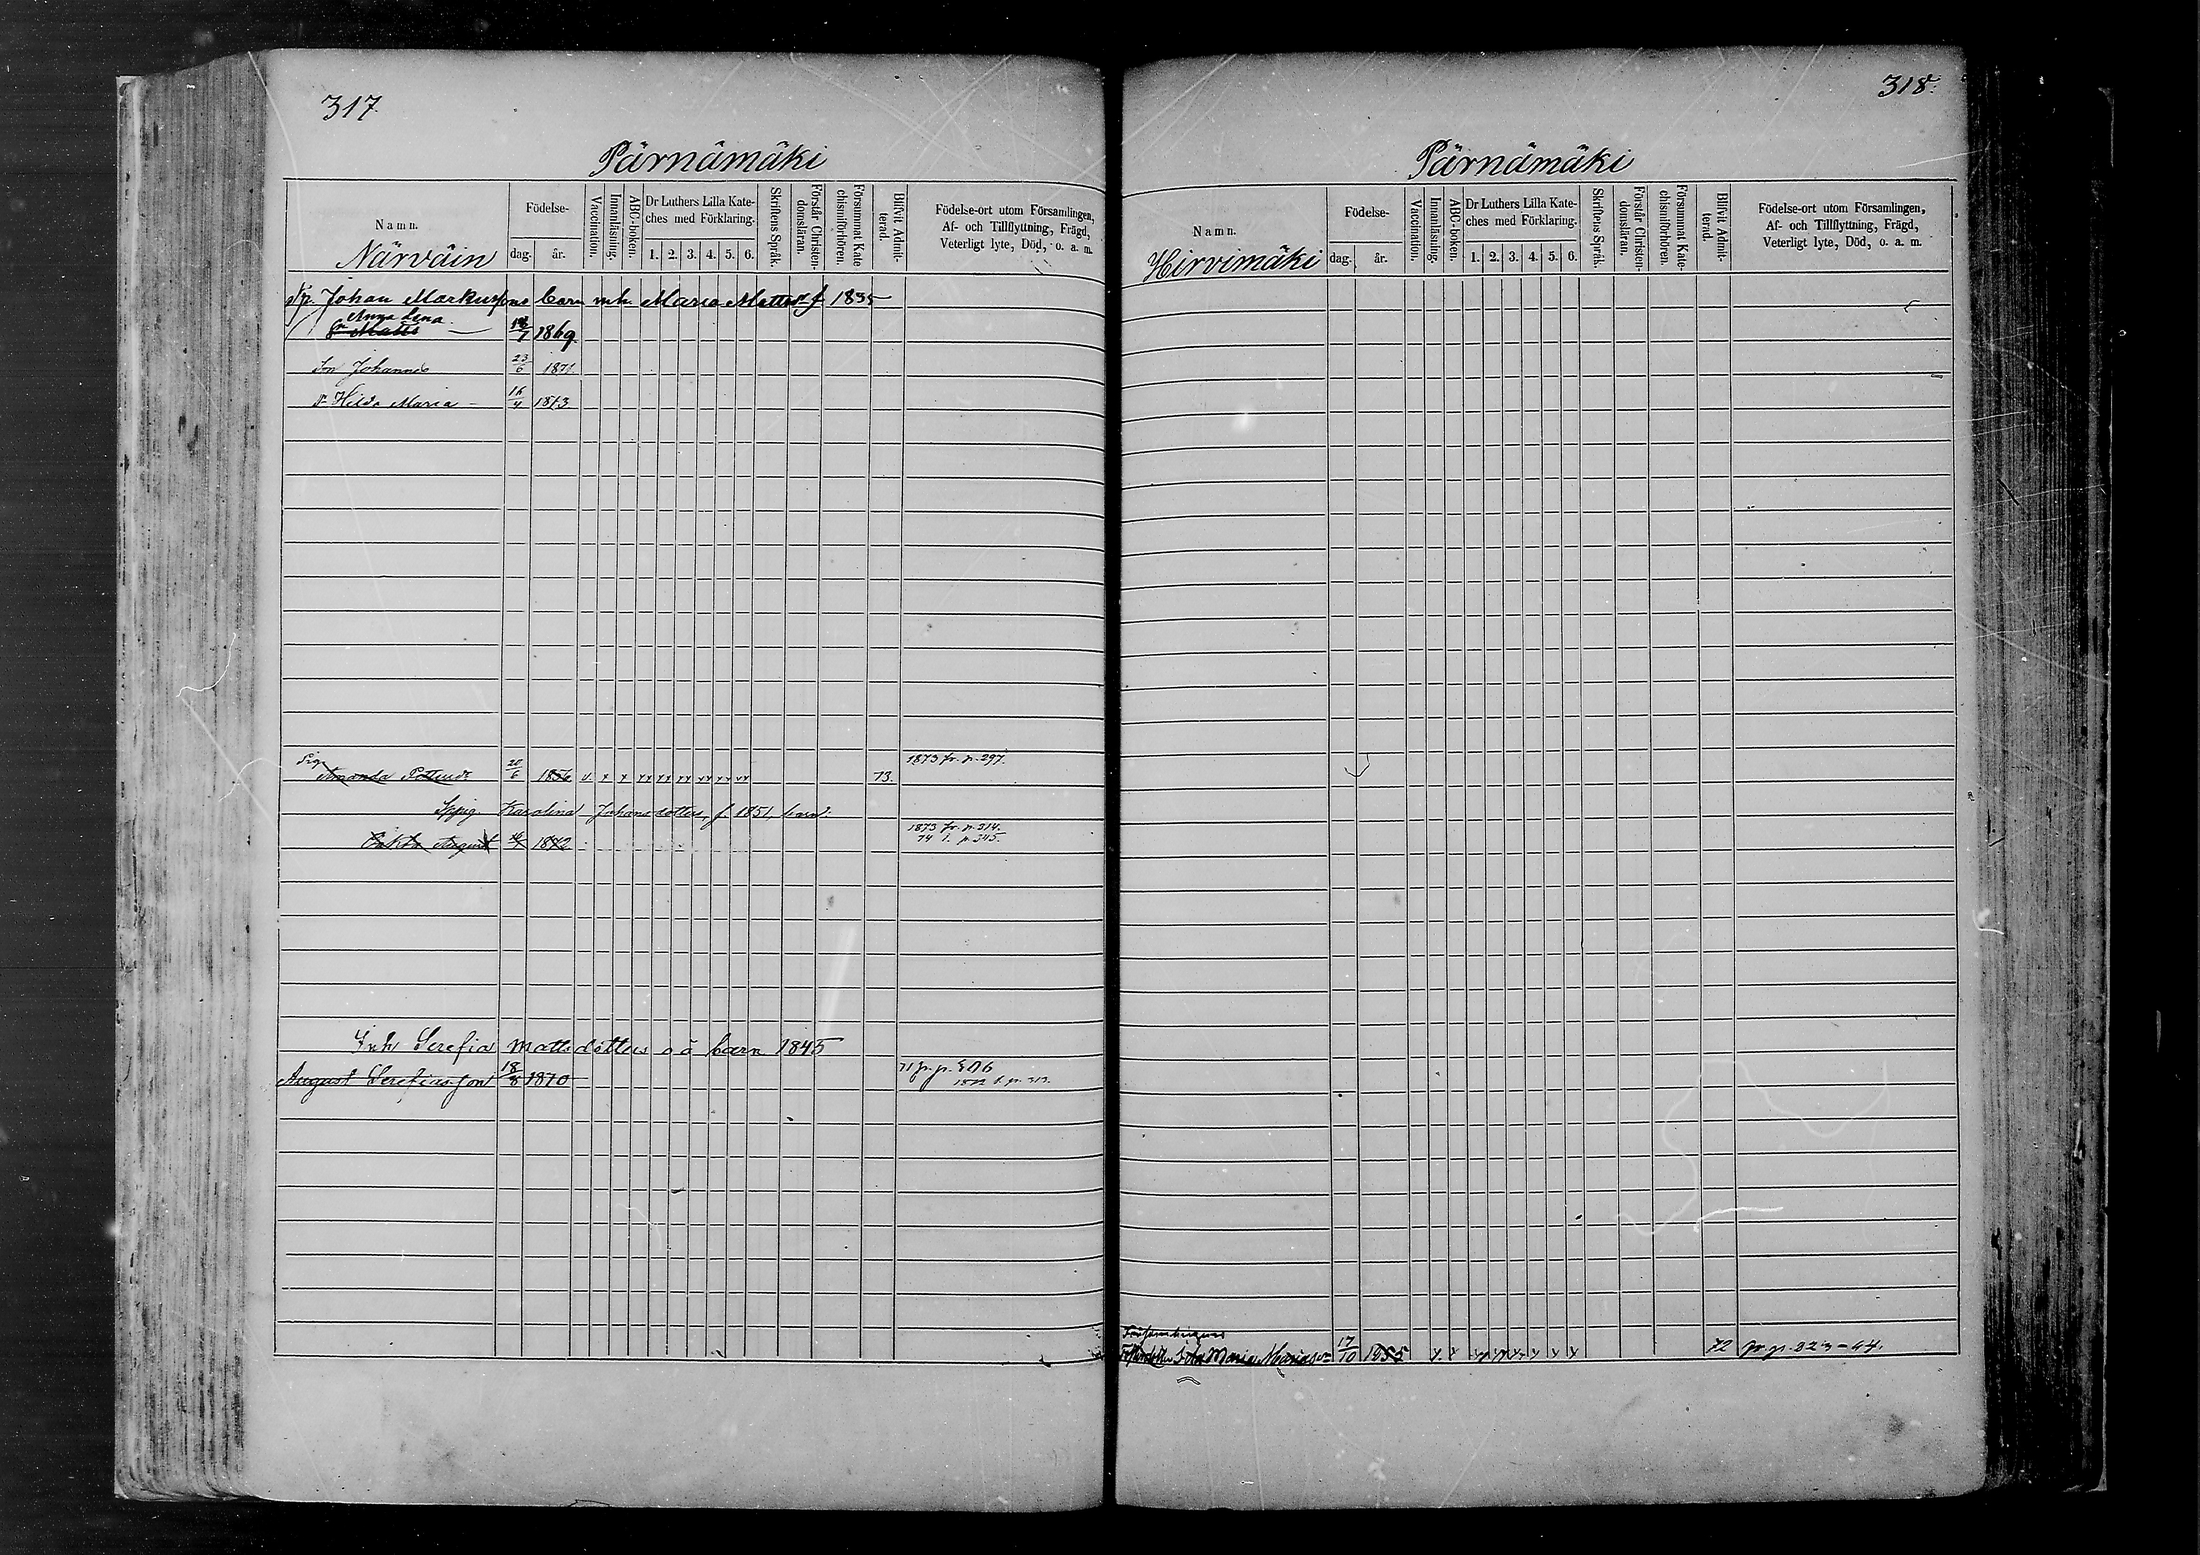 317
Pärnämäki
Namn.
Närväin
Födelse-
dag.
år.
Vaccination.
Innanläsning.
ABC-boken.
Dr Luthers Lilla Kate-
ches med Förklaring.
1. 2. 3. 4. 5. 6.
Skriftens Språk.
Förstår Christen-
domsläran.
Försummat Kate
chismiförhören.
Blifvit Admit-
terad.
Födelse-ort utom Församlingen,
Af- och Tillflyttning, Frägd,
Veterligt lyte, Död, o. a. m.
Johan Markussons barn mh. Maria Mattsd f 1835
Anna Lena
Matts 1869
Son Johannes 23/6 1871
Hilda Maria 16/4 1873
1873 fr. p. 297.
Pig.
Amanda 20/6 1856 v x x xx xx xx xx xx xx 73.
Karolina Johansdotters, f. 1851, barn.
1873 fr. p. 314.
August 1872 74 t. p. 345.
Inh Serefia Mattsdotters o ä barn 1845
August Serefiasson 18/8 1870 71 fr. p.
318.
Pärnämäki
Namn.
Hirvimäki
Födelse-
dag.
år.
Vaccination.
Innanläsning.
ABC-boken.
Dr Luthers Lilla Kate-
ches med Förklaring.
1. 2. 3. 4. 5. 6.
Skriftens Språk.
Förstår Christen-
domsläran.
Försummat Kate-
chismiförhören.
Blifvit Admit-
terad.
Födelse-ort utom Församlingen,
Af- och Tillflyttning, Frägd,
Veterligt lyte, Död, o. a. m.
Församlingens
Maria 17/10 1855 72 fr p. 323-44.